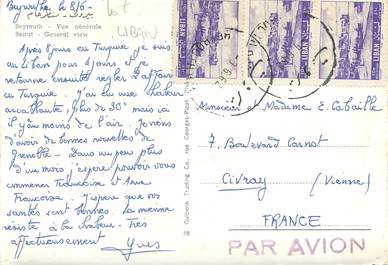 Beyrouth, le 8/6-
67
Beyrouth - Vue générale
Beirut - General view
LIBAN
Après 8 jours en Turquie je suis
au Liban pour 2 jours. Je
retournerai ensuite régler l'affaire
en Turquie. J'ai eu une chaleur
accablante, plus de 30° mais ici
il y a au moins de l'air. Je viens
d'avoir de bonnes nouvelles de
Grenoble. Dans un peu plus
d'un mois, j'espère pouvoir vous
emmener Françoise et Anne
Françoise. J'espère que vos
santés sont bonnes. La mienne
résiste à la chaleur. Très
affectueusement
Yves
Gulbenk Trading Co., rue Georges-Picot
LIBAN
LIBAN
LIBAN
LIBAN
Monsieur et Madame E. Cabaille
7. Boulevard Carnot
Civray (Vienne)
FRANCE
PAR AVION